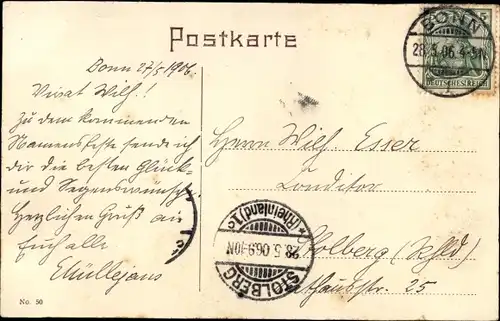 Postkarte
BONN
28.5.06.4-5N
5
DEUTSCHES REICH
Bonn 27/5 1906.
Vivat Wilh.!
Zu dem kommenden
Namensfeste sende ich
dir die besten Glück-
und Segenswünsche.
Herzlichen Gruß an
Euch alle
Herrn Wilh. Esser
Conditor
Stolberg (Rhld)
25
STOLBERG
28.5.06.9-10N
*(Rheinland)1c
No. 50